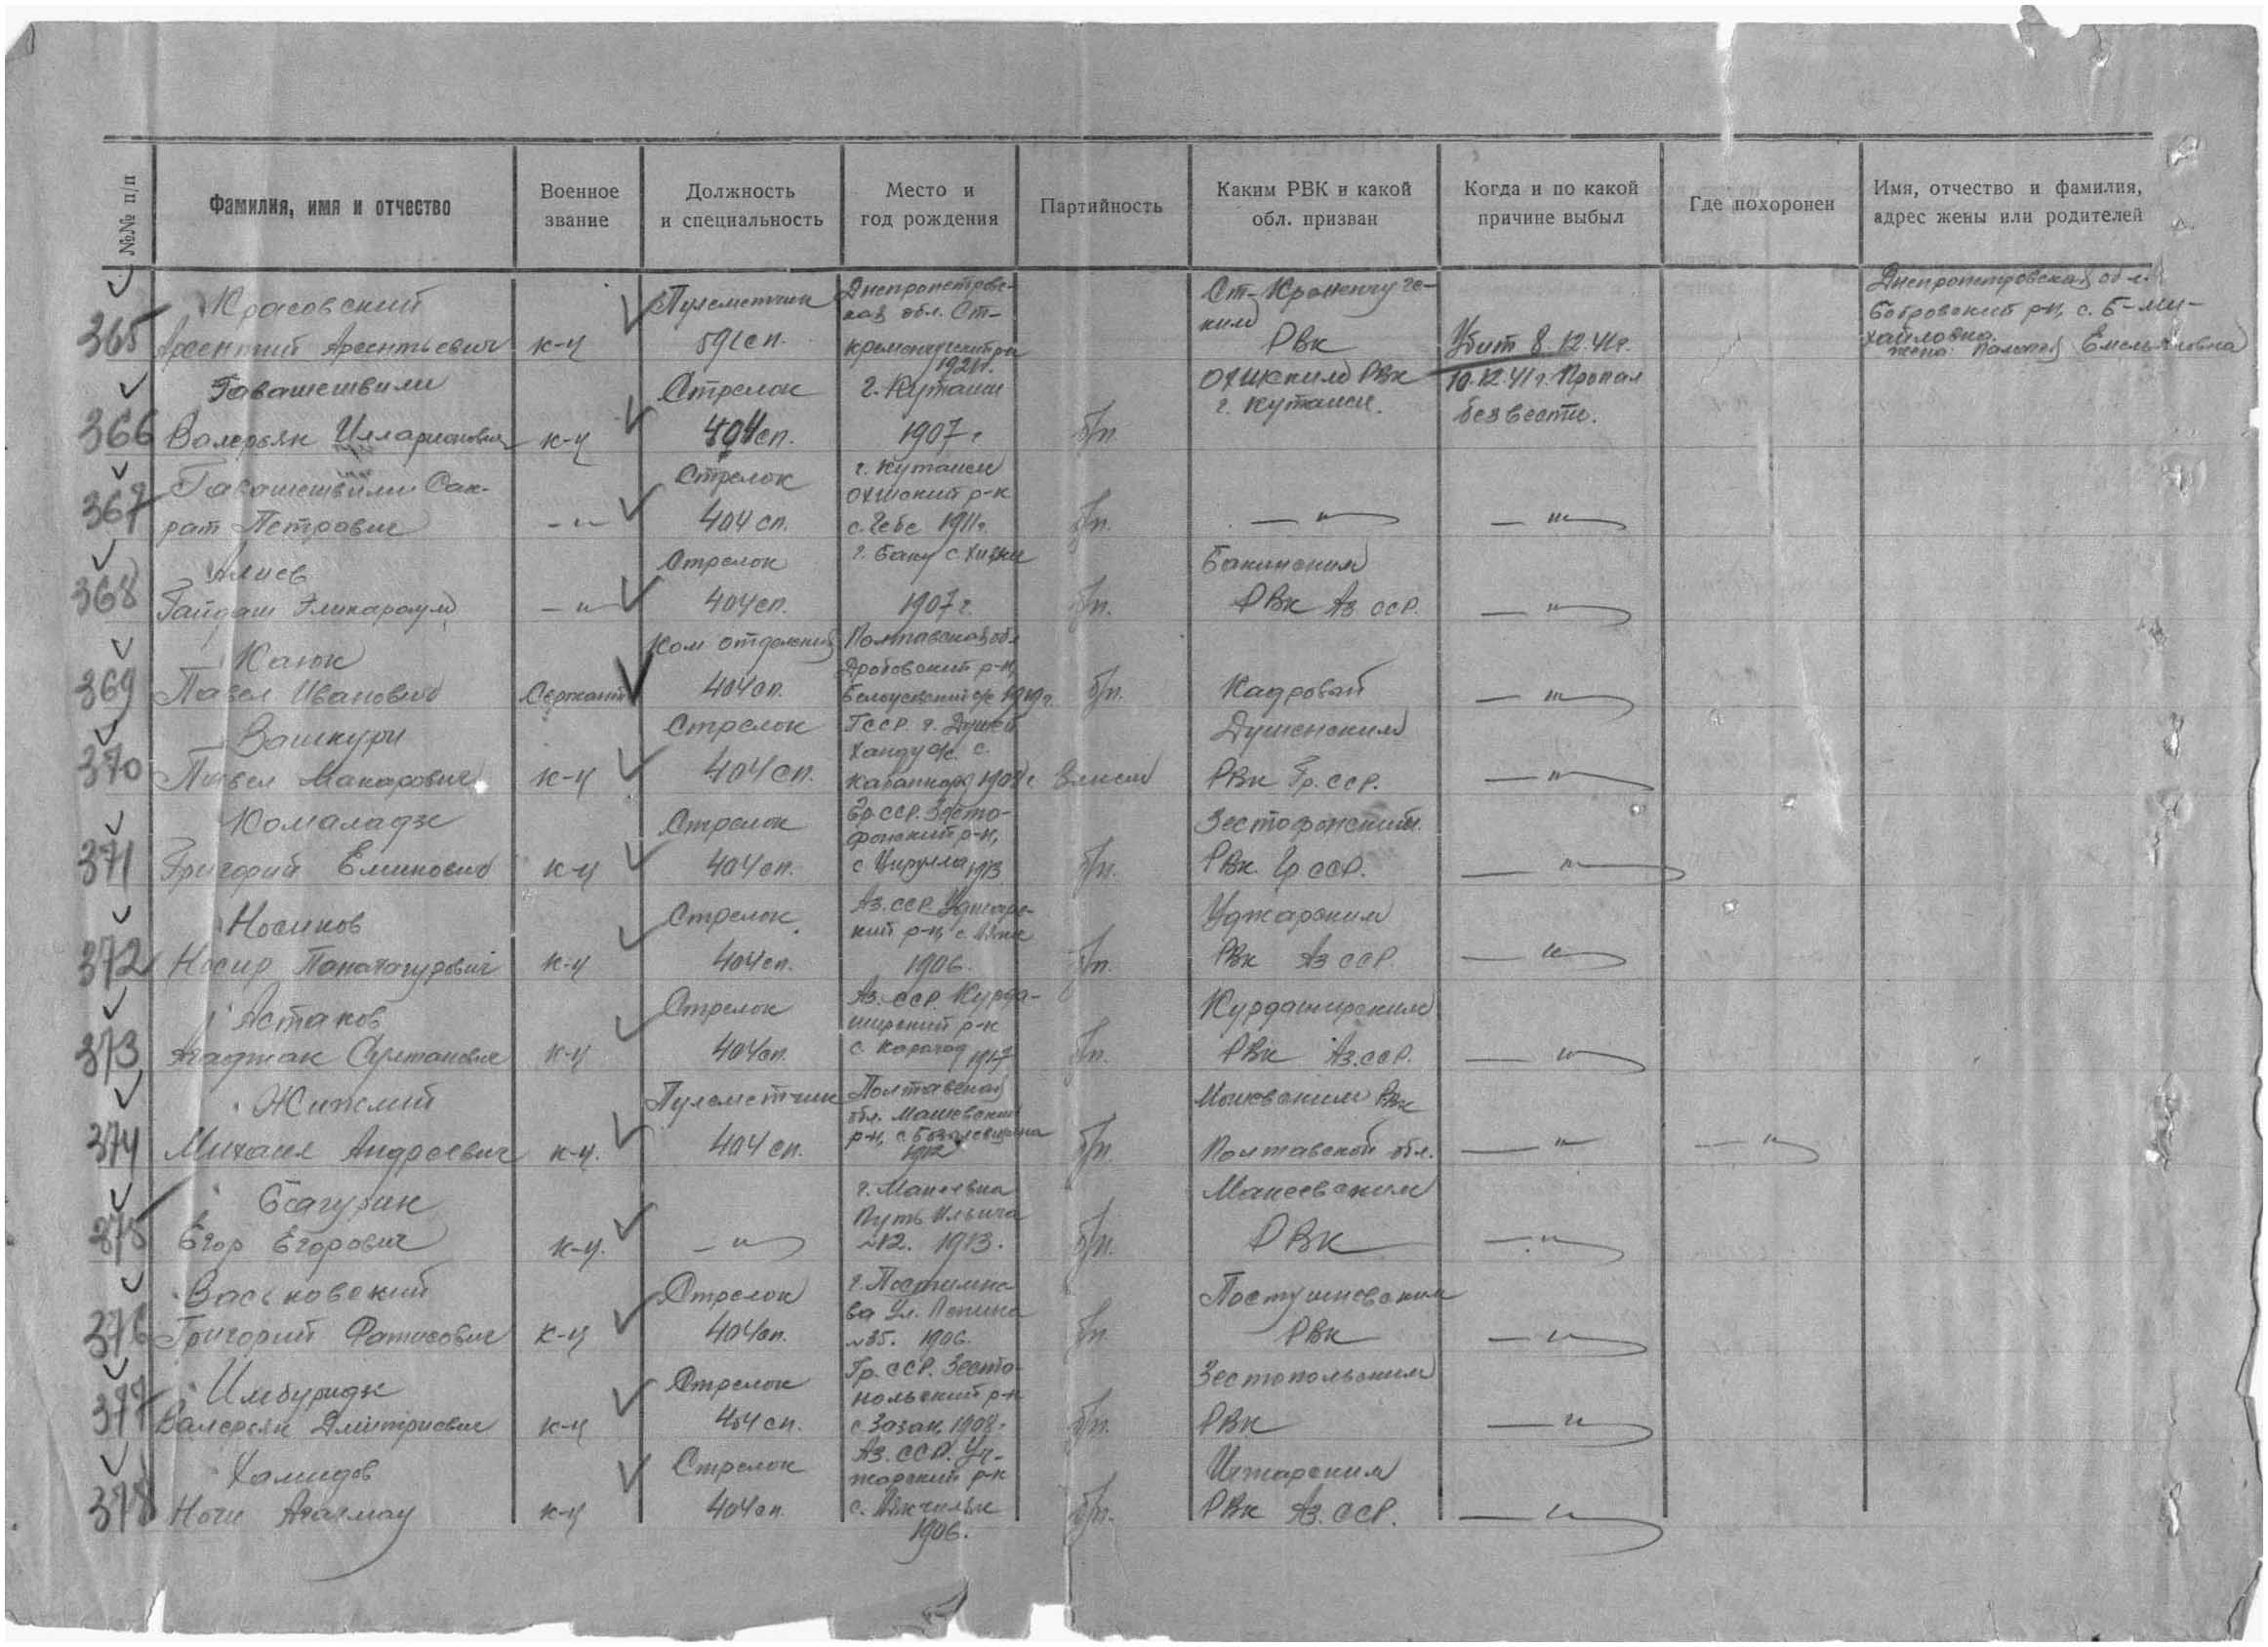 №№ п/п
Фамилия, имя и отчество
Военное звание
Должность и специальность
Место и год рождения
Партийность
Каким РВК и какой обл. призван
Когда и по какой причине выбыл
Где похоронен
Имя, отчество и фамилия, адрес жены или родителей
365
Красовский
Арсентий Арсентьевич
к-ц
Пулеметчик
591 сп.
Днепропетровс-
кая обл. Ст-
1921г.
Ст-Кроненчугс-
ким
РВК
Убит 8.12.41г.
Днепропетровская обл.
р-н, с. Б-Ми-
хайловка.
жена: Емельяновна
366
Гавашешвили
Валерьян Илларионович
к-ц
Стрелок
404 сп.
г. Кутаиси
1907 г
б/п.
РВК
г. Кутаиси.
10.12.41 г. Пропал
без вести.
367
Гавашешвили Сак-
рат Петрович
— " —
Стрелок
404 сп.
г. Кутаиси
р-н
с. Гебе 1911г.
б/п.
— " —
— " —
368
Алиев
— " —
Стрелок
404 сп.
г. Баку с. Хизки
1907 г.
б/п.
Бакинским
РВК Аз ССР.
— " —
369
Каюк
Павел Иванович
Сержант
Ком отделений
404 сп.
Полтавская обл
Дробовский р-н,
1919г.
б/п.
Кадровой
— " —
370
Вашкури
Павел Макарович
к-ц
Стрелок
404 сп.
ГССР. г. Душет
с.
Душетским
РВК Гр. ССР.
— " —
371
Комаладзе
Григорий
к-ц
Стрелок
404 сп.
Гр. ССР. Зесто-
фонский р-н,
1913
б/п.
Зестофонским
РВК. Гр ССР.
— " —
372
Носиков
Носир
к-ц
Стрелок.
404 сп.
Аз. ССР. Уджарс-
кий р-н, с.
1906.
б/п.
Уджарским
РВК Аз ССР.
— " —
373
Астанов
Агаджан Султанович
к-ц
Стрелок
404 сп.
Аз. ССР. Курда-
мирский р-н
с.
б/п.
Курдамирским
РВК Аз.ССР.
— " —
374
Житлий
Михаил Андреевич
к-ц.
Пулеметчик
404 сп.
Полтавская
обл. Машевский
р-н, с.
1912
б/п.
Машевским РВК
Полтавской обл.
— " —
— " —
375
Багурин
Егор Егорович
к-ц.
— " —
г. Макеевка
Путь Ильича
№12. 1913.
б/п.
Макеевским
РВК
— " —
376
Васьковский
Григорий
к-ц
Стрелок
404 сп.
г. Постише-
во Ул. Ленина
№35. 1906.
б/п
Постышевским
РВК
— " —
377
Имбуридзе
Валерьян Дмитриевич
к-ц
Стрелок
404 сп.
Гр. ССР. Зесто-
польский р-н
с. Зазан, 1908.
б/п.
Зестопольским
РВК
— " —
378
Хамидов
Ноги
к-ц
Стрелок
404 сп.
Аз. ССР. Уч-
жарский р-н
с.
1906.
б/п.
РВК Аз. ССР.
— " —